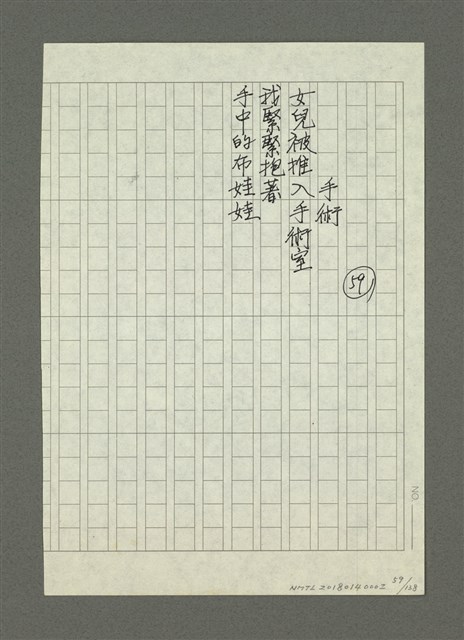 59
手術
女兒被推入手術室
我緊緊抱著
手中的布娃娃
NO.
NMTL 20180140002 59/128